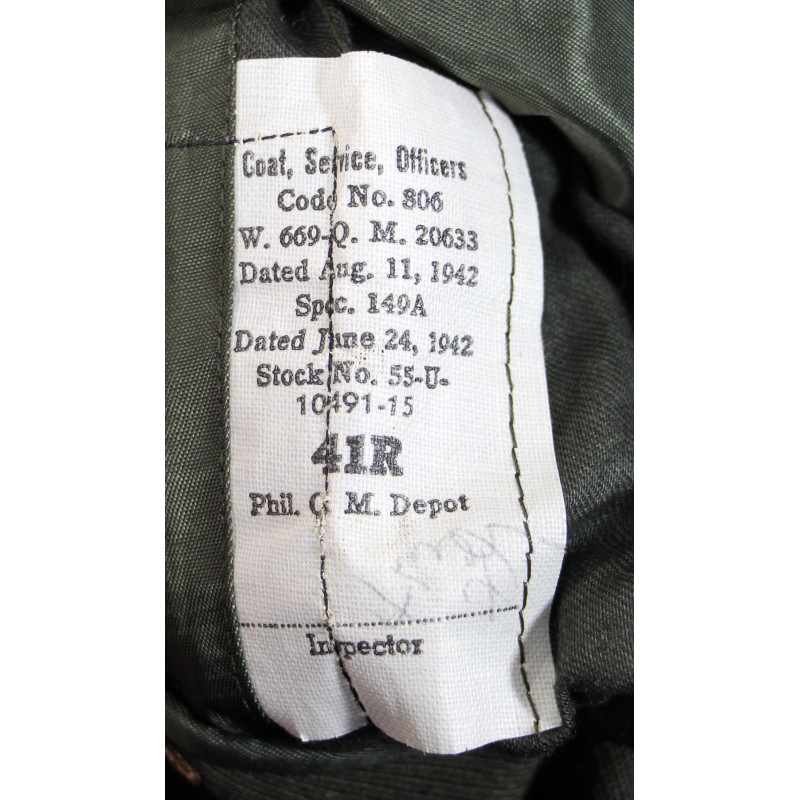 Coat, Service, Officers
Code No. 806
W. 669-Q. M. 20633
Dated Aug. 11, 1942
Spec. 149A
Dated June 24, 1942
Stock No. 55-U-
10491-15
41R
Phil. Q. M. Depot
Inspector